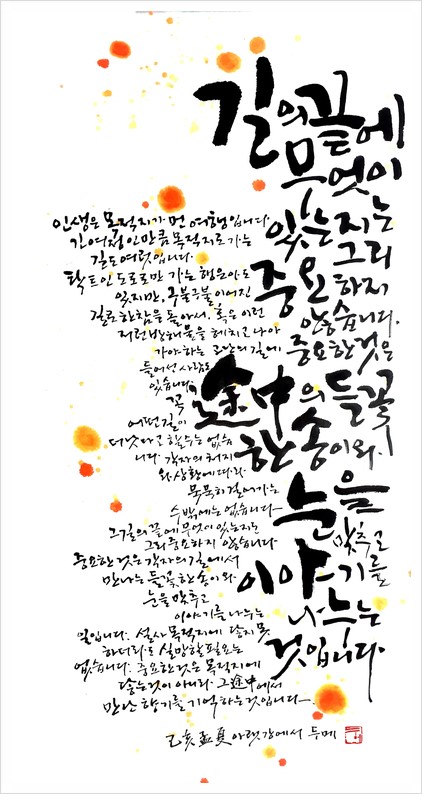 길의 끝에
무엇이
있는지는
그리
중요하지
않습니다.
중요한 것은
途中의 들꽃
한 송이와
눈을
맞추고
이야기를
나누는
것입니다.
인생은 목적지가 먼 여행입니다.
긴 여정인만큼 목적지로 가는
길도 여럿입니다.
탁 트인 도로로만 가는 행운아도
있지만, 구불구불 이어진
길로 한참을 돌아서, 혹은 이런
저런 방해물을 헤치고 나아
가야하는 고난의 길에
들어선 사람도
있습니다.
꼭
어떤 길이
더 낫다고 할 수는 없습
니다. 각자의 처지
와 상황에 따라
묵묵히 걸어가는
수밖에는 없습니다.
그 길의 끝에 무엇이 있는지는
그리 중요하지 않습니다.
중요한 것은 각자의 길에서
만나는 들꽃 한 송이와
눈을 맞추고
이야기를 나누는
일입니다. 설사 목적지에 닿지 못
하더라도 실망할 필요는
없습니다. 중요한 것은 목적지에
닿는 것이 아니라 그 途中에서
만난 향기를 기억하는 것입니다.
乙亥 孟夏 아랫간에서 두메